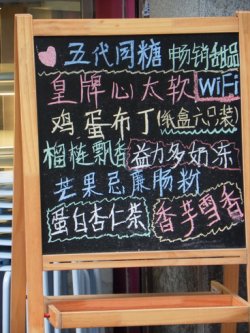 五代同糖 畅销甜品
皇牌心太软 WiFi
鸡蛋布丁 (纸盒六只装)
榴梿飘香 益力多奶冻
芒果忌廉肠粉
蛋白杏仁茶 香芋雪